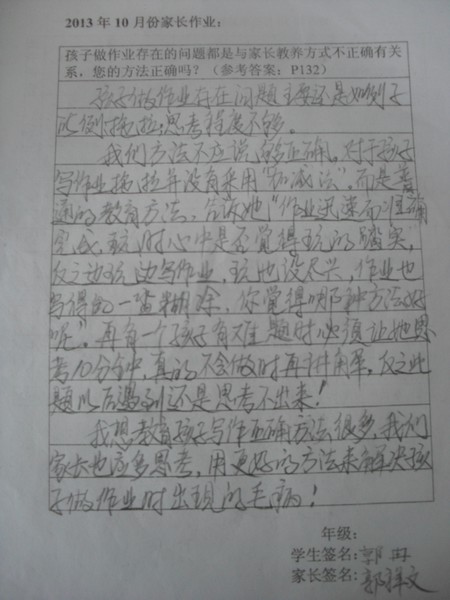 2013年10月份家长作业：
孩子做作业存在的问题都是与家长教养方式不正确有关
系，您的方法正确吗？（参考答案：P132）
孩子做作业存在问题主要还是如例子
比例拖拉思考程度不够。
我们方法不应说够正确。对于孩子
写作业拖拉并没有采用“加减法”。而是普
通的教育方法，告诉她“作业迅速而准确
完成，玩时心中是否觉得玩的踏实，
反之边玩边写作业，玩也没尽兴，作业也
写得的一沓糊涂，你觉得哪种方法好
呢”。再有一个孩子有难题时必须让她思
考10分钟，真的不会做时再讲解，反之此
题以后遇到还是思考不出来！
我想教育孩子写作正确方法很多，我们
家长也应多思考，用更好的方法来解决孩
子做作业时出现的毛病！
年级：
学生签名：郭冉
家长签名：郭祥文